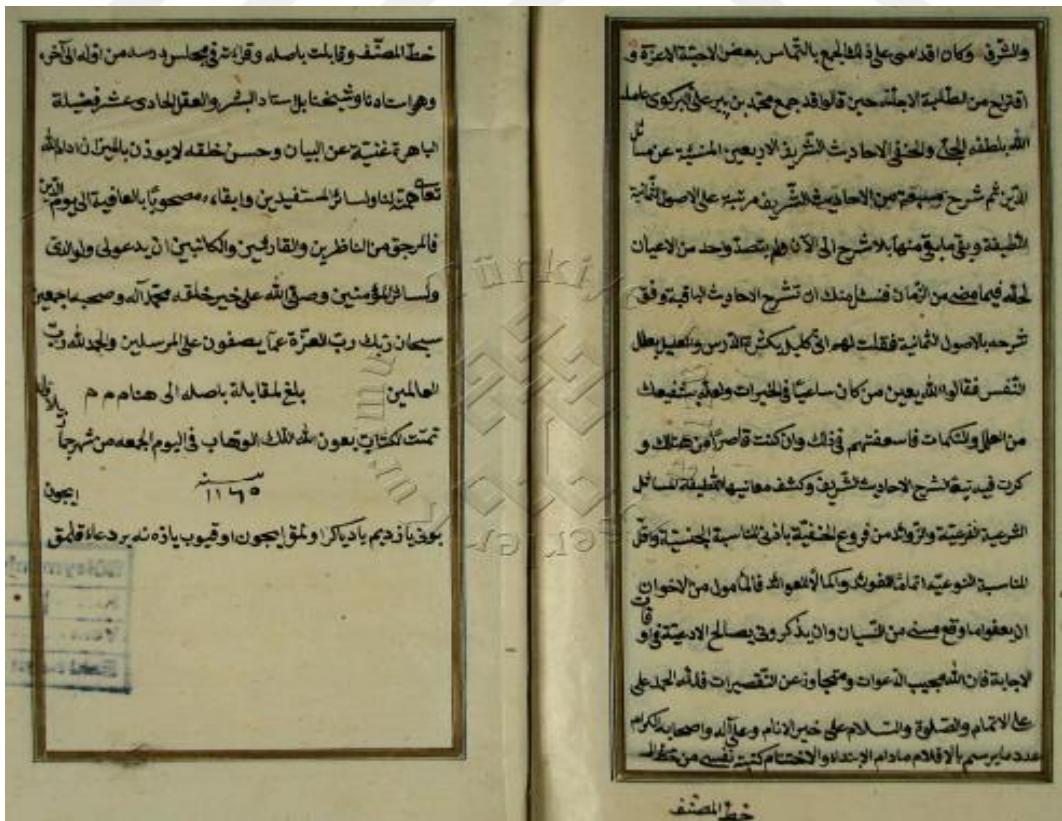 والشرف وكان اقدامى على ذلك الجمع بالتماس بعض الاحبة الاعزة و
اقتراح من الطلبة الاجلة حين قالوا قد جمع محمد بن پير على البركوى عامله
الله بلطفه الجلى والخفى الاحاديث الشريفة الاربعين المنبئة عن مسائل
الدين ثم شرح من الاحاديث الشريف مرتبة على الاصول الثمانية
اللطيفة وبقى ما بقى منها بلا شرح الى الآن ولم يتصد واحد من الاعيان
لحله فيما مضى من الزمان فنسئل منك ان تشرح الاحاديث الباقية وفق
شرحه بالاصول الثمانية فقلت لهم انى كليل بكثرة الدرس والعليل بعلل
النفس فقالوا الله يعين من كان ساعيا فى الخيرات ولعله يشفيك
من العلل والنكبات فاسعفتهم فى ذلك وان كنت قاصرا من هنالك و
ذكرت فيه تبعة لشرح الاحاديث الشريف وكشف معانيها اللطيفة المسائل
الشرعية الفرعية والزوائد من فروع الحنفية باذنى المناسبة الجنسية واقل
المناسبة النوعية اتماما للفوائد واكمالا للعوائد فالمأمول من الاخوان
ان يعفوا ما وقع منى من النسيان وان يذكرونى بصالح الادعية فى اوقات
الاجابة فان الله مجيب الدعوات ومتجاوز عن التقصيرات فلله الحمد على
على الاتمام والصلوة والسلام على خير الانام وعلى آله واصحابه الكرام
عدد ما يرسم بالاقلام مادام الابتداء والاختتام كتبته نفسى من خط الـ
خط المصنف
خط المصنف وقابلت باصله وقراءته فى مجلس درسه من اوله الى آخره
وهو استاذنا وشيخنا بل استاد البشر والعقل الحادى عشر فضيلة
الباهرة غنية عن البيان وحسن خلقه لا يوزن بالميزان ادام الله
تعالى همته لنا ولسائر المستفيدين وابقاه مصحوبا بالعافية الى يوم الدين
فالمرجو من الناظرين والقارئين والكاتبين ان يدعو لى ولوالدى
ولسائر المؤمنين وصلى الله على خير خلقه محمد آله وصحبه اجمعين
سبحان ربك رب العزة عما يصفون على المرسلين والحمد لله رب
العالمين بلغ لمقابلة باصله الى هنا م م م
تمت الكتاب بعون الله الملك الوهاب فى اليوم الجمعه من شهر
سنه
١١٦٥
ايچون
بونى يازديم ياديا كرا اولنمق ايچون اوقيوب يازه نه بر دعاء قلمق
Türkiye